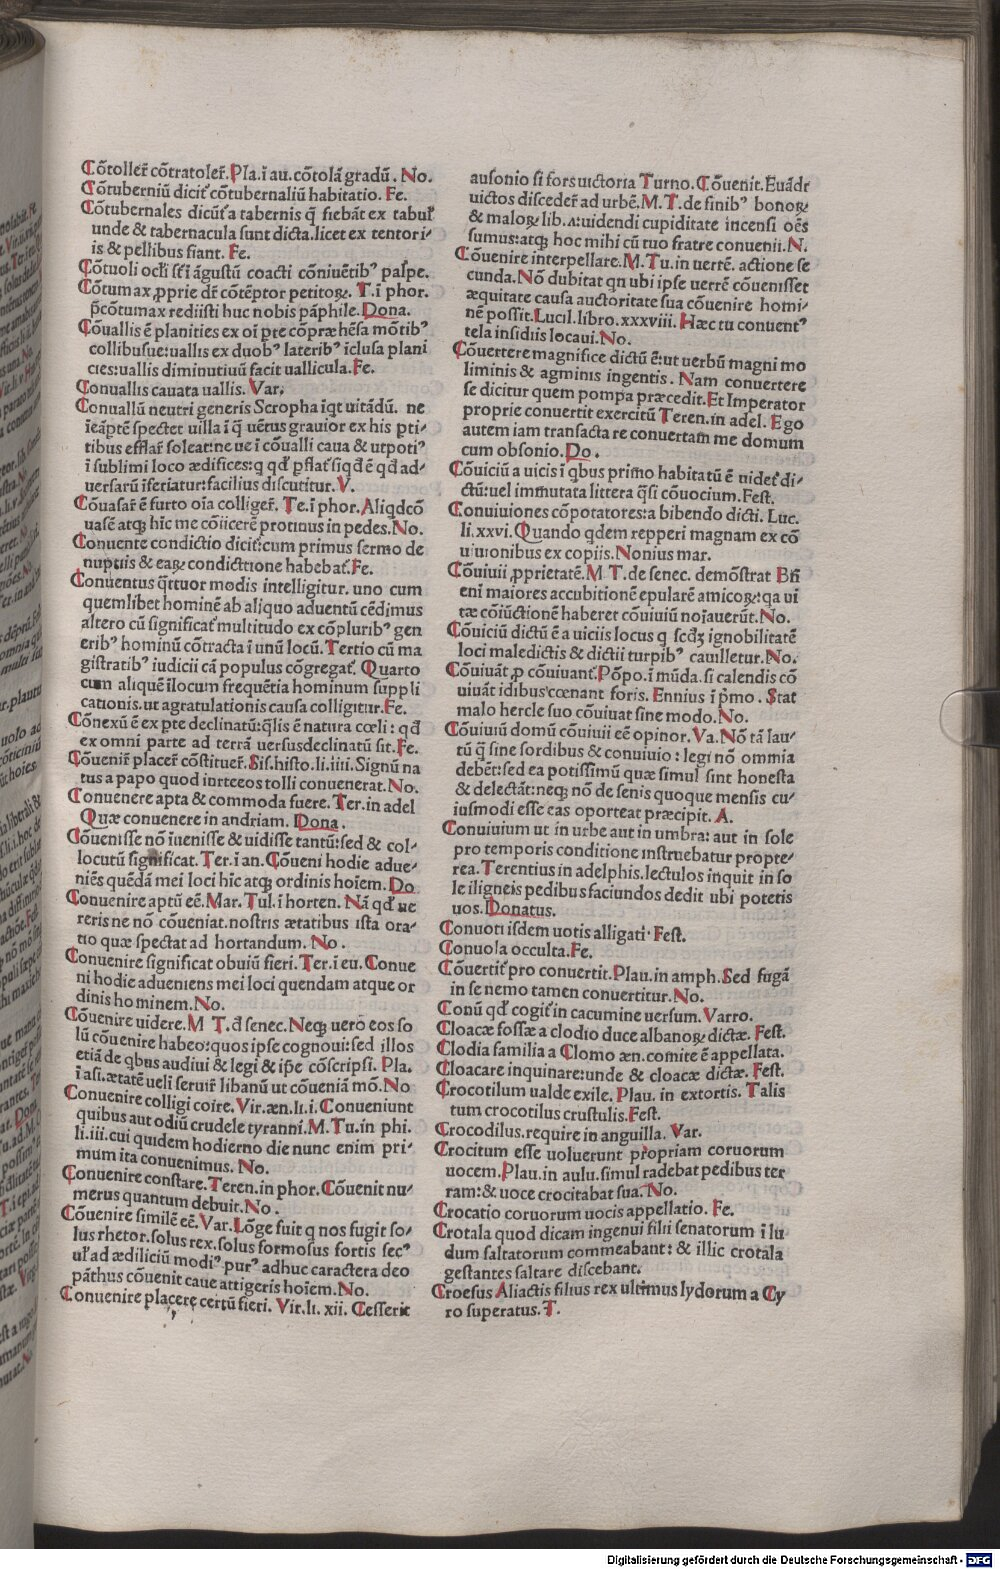 Cōtolleř cōtratoleř. Pla. ī au. cōtolā gradū. No.
Cōtuberniū diciť cōtubernaliū habitatio. Fe.
Cōtubernales dicūť a tabernis q̄ fiebāt ex tabuľ
unde & tabernacula sunt dicta. licet ex tentori-
is & pellibus fiant. Fe.
Cōtuoli oclī sūt ī āgustū coacti cōniuētibꝰ palpe.
Cōtumax ꝓprie dř cōtēptor petitoꝝ. T. ī phor.
p̄cōtumax rediisti huc nobis pāphile. Dona.
Cōuallis ē planities ex oī pte cōpræhēsa mōtibꝰ
collibusue: uallis ex duobꝰ lateribꝰ īclusa plani
cies: uallis diminutiuū facit uallicula. Fe.
Conuallis cauata uallis. Var.
Conuallū neutri generis Scropha īqt uitādū. ne
īeāptē spectet uilla ī q̄ uētus grauior ex his pti-
tibus efflař soleat: ne ue ī cōualli caua & utpotiꝰ
ī sublimi loco ædifices: q qd̄ pflať siqd ē qd̄ ad-
uersarū īferiatur: facilius discutitur. V.
Cōuasař ē furto oīa colligeř. Te. ī phor. Aliqdcō
uasē atqꝫ hic me cōiicerē protinus in pedes. No.
Conuente condictio diciť: cum primus sermo de
nuptiis & eaꝝ condicttione habebať. Fe.
Conuentus q̄ttuor modis intelligitur. uno cum
quemlibet hominē ab aliquo aduentū cēdimus
altero cū significať multitudo ex cōpluribꝰ gen
eribꝰ hominū cōtracta ī unū locū. Tertio cū ma
gistratibꝰ iudicii cā populus cōgregať. Quarto
cum aliquē īlocum frequētia hominum suppli
cationis. ut agratulationis causa colligitur. Fe.
Cōnexū ē ex pte declinatū: q̄lis ē natura cœli: qd̄
ex omni parte ad terrā uersusdeclinatū sit. Fe.
Cōueniř placeř cōstitueř. Sis. histo. li. iiii. Signū na
tus a papo quod inrteeos tolli conuenerat. No.
Conuenere apta & commoda fuere. Ter. in adel
Quæ conuenere in andriam. Dona.
Cōuenisse nō īuenisse & uidisse tantū: sed & col-
locutū significat. Ter. ī an. Cōueni hodie adue-
niēs quēdā mei loci hic atqꝫ ordinis hoīem. Do
Conuenire aptū eē. Mar. Tul. ī horten. Nā qd̄ ue
reris ne nō cōueniat. nostris ætatibus ista ora-
tio quæ spectat ad hortandum. No.
Conuenire significat obuiū fieri. Ter. ī eu. Conue
ni hodie adueniens mei loci quendam atque or
dinis hominem. No.
Cōuenire uidere. M T. đ senec. Neqꝫ uero eos so
lū cōuenire habeo: quos ipse cognoui: sed illos
etiā de qbus audiui & legi & ip̄e cōscripsi. Pla.
ī asi. ætatē ueli seruiř libanū ut cōueniā mō. No
Conuenire colligi coire. Vir. æn. li. i. Conueniunt
quibus aut odiū crudele tyranni. M. Tu. in phi.
li. iii. cui quidem hodierno die nunc enim pri-
mum ita conuenimus. No.
Conuenire constare. Teren. in phor. Cōuenit nu-
merus quantum debuit. No.
Cōuenire similē eē. Var. Lōge fuit q nos fugit so-
lus rhetor. solus rex. solus formosus fortis secꝰ
uľ ad ædiliciū modiꝰ purꝰ adhuc caractera deo
pāthus cōuenit caue attigeris hoīem. No.
Conuenire placere certū fieri. Vir. li. xii. Cesserit
ausonio si fors uictoria Turno. Cōuenit. Euādr
uictos disceđeř ad urbē. M. T. de finibꝰ bonoꝝ
& maloꝝ lib. A: uidendi cupiditate incensi oēs
sumus: atqꝫ hoc mihi cū tuo fratre conuenii. N.
Cōuenire interpellare. M. Tu. in uerrē. actione se
cunda. Nō dubitat qn ubi ipse uerrē cōuenisset
æquitate causa auctoritate sua cōuenire homi-
nē possit. Lucil. libro. xxxviii. Hæc tu conuentꝰ
tela insidiis locaui. No.
Cōuertere magnifice dictū ē: ut uerbū magni mo
liminis & agminis ingentis. Nam conuertere
se dicitur quem pompa præcedit. Et Imperator
proprie conuertit exercitū Teren. in adel. Ego
autem iam transacta re conuertam me domum
cum obsonio. Do.
Cōuiciū a uicis ī qbus primo habitatū ē uideť di-
ctū: uel immutata littera q̄si cōuocium. Fest.
Conuiuiones cōpotatores: a bibendo dicti. Luc.
li. xxvi. Quando qdem repperi magnam ex cō
uiuionibus ex copiis. Nonius mar.
Cōuiuii ꝓprietatē. M T. de senec. demōstrat Bn̄
enī maiores accubitionē epularē amicoꝝ: qa ui
tæ cōiūctionē haberet cōuiuiū noīauerūt. No.
Cōuiciū dictū ē a uiciis locus q scđꝫ ignobilitatē
loci maledictis & dictii turpibꝰ cauilletur. No.
Cōuiuāt ꝓ cōuiuanť. Pōpo. ī mūda. si calendis cō
uiuāt idibus'cœnant foris. Ennius ī p̄mo. Stat
malo hercle suo cōuiuat sine modo. No.
Cōuiuiū domū cōuiuii eē opinor. Va. Nō tā lau-
tū q̄ sine sordibus & conuiuio: legi nō ommia
debēt: sed ea potissimū quæ simul sint honesta
& delectāt: neqꝫ nō de senis quoque mensis cu-
iusmodi esse eas oporteat præcipit. A.
Conuiuium ut in urbe aut in umbra: aut in sole
pro temporis conditione instruebatur propte-
rea. Terentius in adelphis. lectulos inquit in so
le iligneis pedibus faciundos dedit ubi potetis
uos. Donatus.
Conuoti isdem uotis alligati. Fest.
Conuola occulta. Fe.
Cōuertiť pro conuertit. Plau. in amph. Sed fugā
in se nemo tamen conuertitur. No.
Conū qđ cogiť in cacumine uersum. Varro.
Cloacæ fossæ a clodio duce albanoꝝ dictæ. Fest.
Clodia familia a Clomo æn. comite ē appellata.
Cloacare inquinare: unde & cloacæ dictæ. Fest.
Crocotilum ualde exile. Plau. in extortis. Talis
tum crocotilus crustulis. Fest.
Crocodilus. require in anguilla. Var.
Crocitum esse uoluerunt propriam coruorum
uocem. Plau. in aulu. simul radebat pedibus ter
ram: & uoce crocitabat sua. No.
Crocatio coruorum uocis appellatio. Fe.
Crotala quod dicam ingenui filii senatorum ī lu
dum saltatorum commeabant: & illic crotala
gestantes saltare discebant.
Croesus Aliactis filius rex ultimus lydorum a Cy
ro superatus. T.
Digitalisierung gefördert durch die Deutsche Forschungsgemeinschaft - DFG